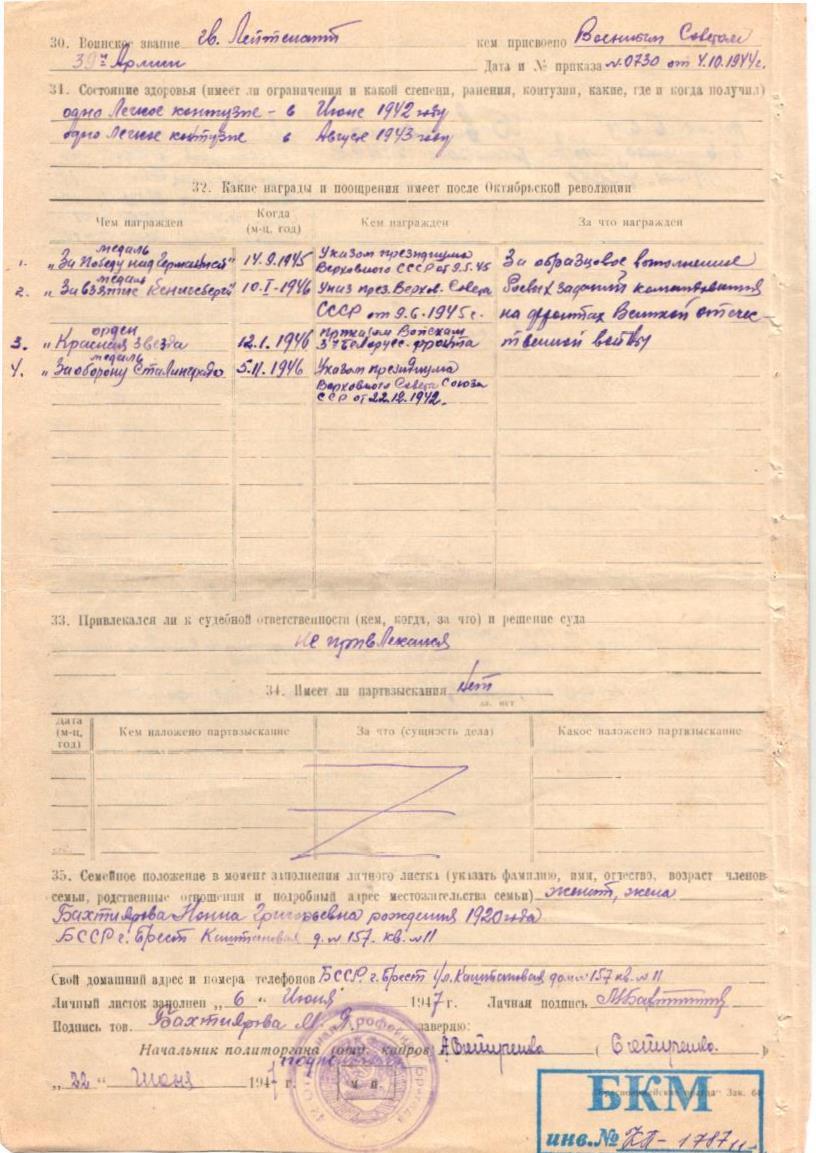 30. Воинское звание гв. Лейтенант кем присвоено Военным Советом
39й Армии Дата и № приказа №0730 от 4.10.1944г.
31. Состояние здоровья (имеет ли ограничения и какой степени, ранения, контузии, какие, где и когда получил)
одно Легкое контузие - в Июне 1942 году
одно Легкое контузие в Августе 1943 году
32. Какие награды и поощрения имеет после Октябрьской революции
Чем награжден Когда (м-ц, год) Кем награжден За что награжден
1. медаль „За Победу над Германией" 14.9.1945 Указом президиума Верховного СССР от 9.5.45 За образцовое выполнение
2. медаль „За взятие Кенигсберга" 10.I-1946 Указ през. Верхов. Совета боевых заданий командования
СССР от 9.6.1945г. на фронтах Великой отечес-
3. орден „Красная Звезда 12.1.1946 Приказом Войскам 3го Белорус. фронта твенной войны
4. медаль „За оборону Сталинграда 5.II.1946 Указом президиума
Верховного Совета Союза
ССР от 22.12.1942.
33. Привлекался ли к судебной ответственности (кем, когда, за что) и решение суда
не привлекался
34. Имеет ли партвзыскания нет
да, нет
Дата (м-ц, год) Кем наложено партвзыскание За что (сущность дела) Какое наложено партвзыскание
35. Семейное положение в момент заполнения личного листка (указать фамилию, имя, отчество, возраст членов
семьи, родственные отношения и подробный адрес местожительства семьи) женат, жена
Бахтиярова Нонна Григорьевна рождения 1920 года
БССР г. Брест Каштановая д. № 157. кв. № 11
Свой домашний адрес и номера телефонов БССР. г. Брест ул. Каштановая дом № 157 кв. № 11
Личный листок заполнен „6" Июня 1947 г. Личная подпись
Подпись тов. Бахтиярова заверяю:
Начальник политоргана (отд. кадров)
„22" Июня 1947 г. М П
Зак. 64
БКМ
инв.№ КП-1787